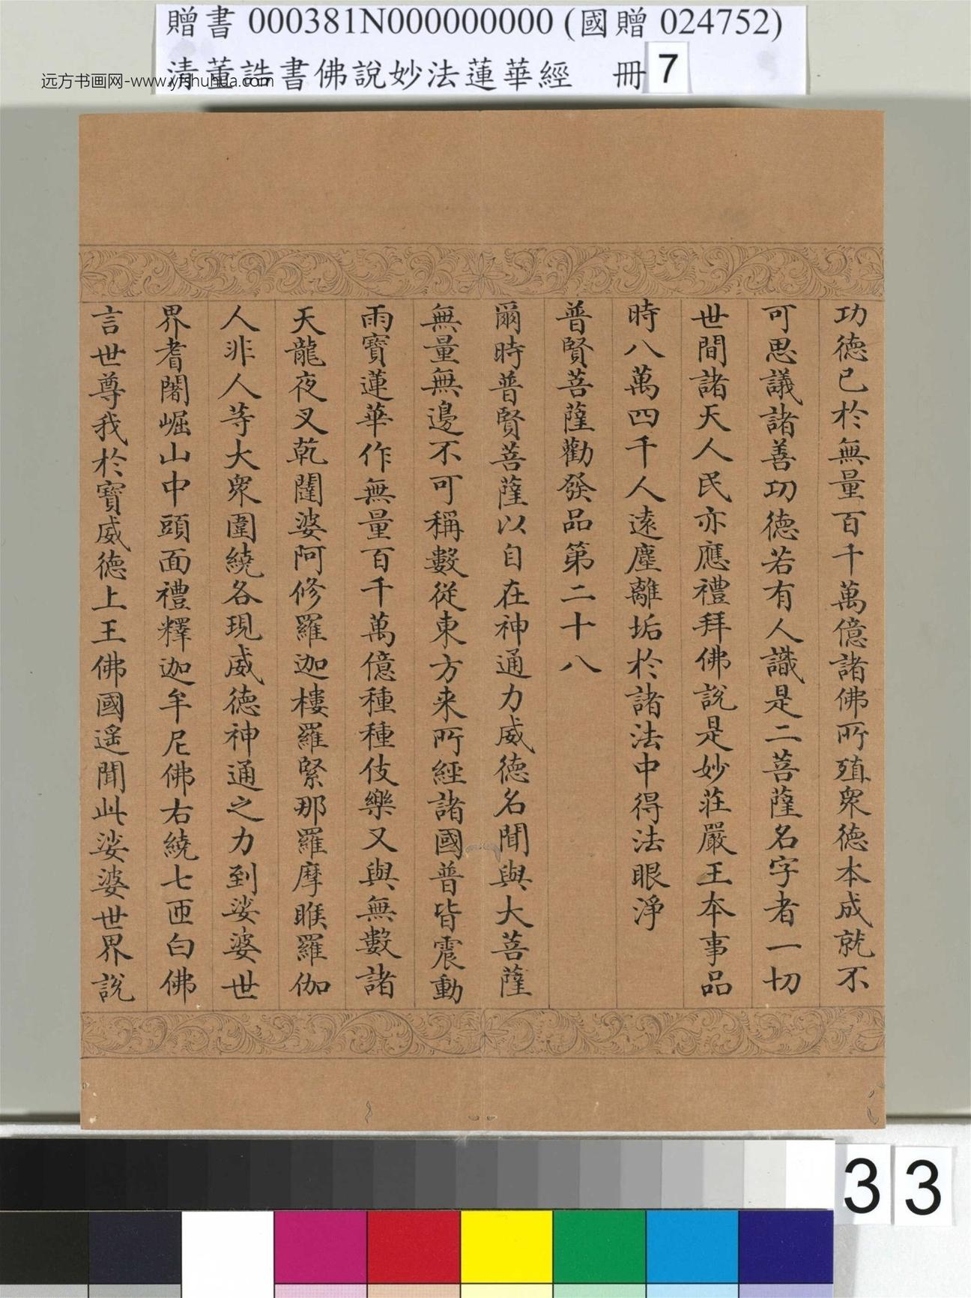 贈書 000381N000000000 (國贈 024752)
清董誥書佛說妙法蓮華經 冊 7
远方书画网-www.yfshuhua.com
功德已於無量百千萬億諸佛所殖衆德本成就不
可思議諸善功德若有人識是二菩薩名字者一切
世間諸天人民亦應禮拜佛說是妙莊嚴王本事品
時八萬四千人遠塵離垢於諸法中得法眼淨
普賢菩薩勸發品第二十八
爾時普賢菩薩以自在神通力威德名聞與大菩薩
無量無邊不可稱數從東方来所經諸國普皆震動
雨寶蓮華作無量百千萬億種種伎樂又與無數諸
天龍夜叉乾闥婆阿修羅迦樓羅緊那羅摩睺羅伽
人非人等大衆圍繞各現威德神通之力到娑婆世
界耆闍崛山中頭面禮釋迦牟尼佛右繞七匝白佛
言世尊我於寶威德上王佛國遥聞此娑婆世界說
33